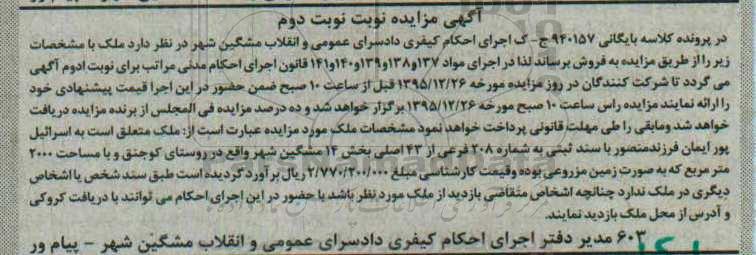 آگهی مزایده نوبت نوبت دوم
در پرونده کلاسه بایگانی ۹۴۰۱۵۷ ج- ک اجرای احکام کیفری دادسرای عمومی و انقلاب مشگین شهر در نظر دارد ملک با مشخصات
زیر را از طریق مزایده به فروش برساند لذا در اجرای مواد ۱۳۷و۱۳۸و۱۳۹و۱۴۰و۱۴۱ قانون اجرای احکام مدنی مراتب برای نوبت ادوم آگهی
می گردد تا شرکت کنندگان در روز مزایده مورخه ۱۳۹۵/۱۲/۲۶ قبل از ساعت ۱۰ صبح ضمن حضور در این اجرا قیمت پیشنهادی خود
را ارائه نمایند مزایده راس ساعت ۱۰ صبح مورخه ۱۳۹۵/۱۲/۲۶ برگزار خواهد شد و ده درصد مزایده فی المجلس از برنده مزایده دریافت
خواهد شد ومابقی را طی مهلت قانونی پرداخت خواهد نمود مشخصات ملک مورد مزایده عبارت است از: ملک متعلق است به اسرائیل
پور ایمان فرزندمنصور با سند ثبتی به شماره ۲۰۸ فرعی از ۴۳ اصلی بخش ۱۴ مشگین شهر واقع در روستای کوجنق و با مساحت ۲۰۰۰
متر مربع که به صورت زمین مزروعی بوده وقیمت کارشناسی مبلغ ۲/۷۷۰/۲۰۰/۰۰۰ ریال برآورد گردیده است طبق سند شخص یا اشخاص
دیگری در ملک ندارد چنانچه اشخاص متقاضی بازدید از ملک مورد نظر باشد با حضور در این اجرای احکام می توانند با دریافت کروکی
و آدرس از محل ملک بازدید نمایند.
۶۰۳ مدیر دفتر اجرای احکام کیفری دادسرای عمومی و انقلاب مشگین شهر - پیام ور